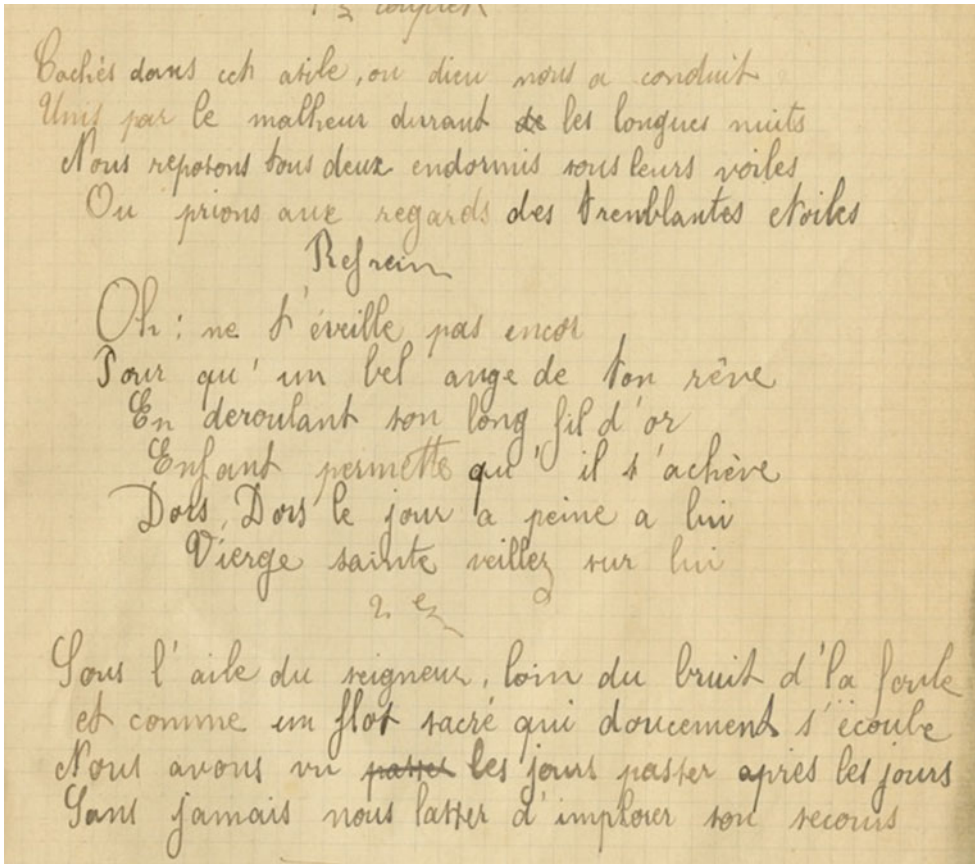 1er couplet
Cachés dans cet asile, ou dieu nous a conduit
Unis par le malheur durant de les longues nuits
Nous reposons tous deux endormis sous leurs voiles
Ou prions aux regards des tremblantes etoiles
Refrein
Oh : ne t'éveille pas encor
Pour qu'un bel ange de ton rêve
En deroulant son long fil d'or
Enfant permette qu'il s'achève
Dors, Dors le jour a peine a lui
Vierge sainte veillez sur lui
2e
Sous l'aile du seigneur, loin du bruit d'la foule
et comme un flot sacré qui doucement s'écoule
Nous avons vu passer les jours passer après les jours
Sans jamais nous lasser d'implorer son secours